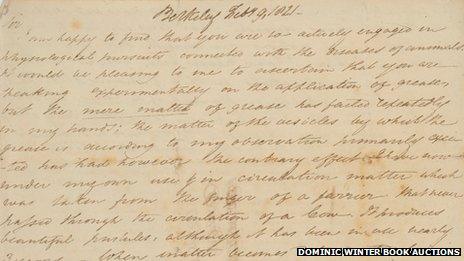 Berkeley Feb 9, 1821.
Sir,
I am happy to find that you are so actively engaged in
physiological pursuits connected with the diseases of animals.
It would be pleasing to me to ascertain that you are
speaking experimentally on the application of grease,
but the mere matter of grease has failed repeatedly
in my hands; the matter of the vesicles by which the
grease is according to my observation primarily exci-
ted has had however the contrary effect. I have now
under my own use & in circulation matter which
was taken from the finger of a farrier that never
passed through the circulation of a Cow. It produces
beautiful pustules, although it has been in use nearly
when matter becomes
DOMINIC WINTER BOOK AUCTIONS